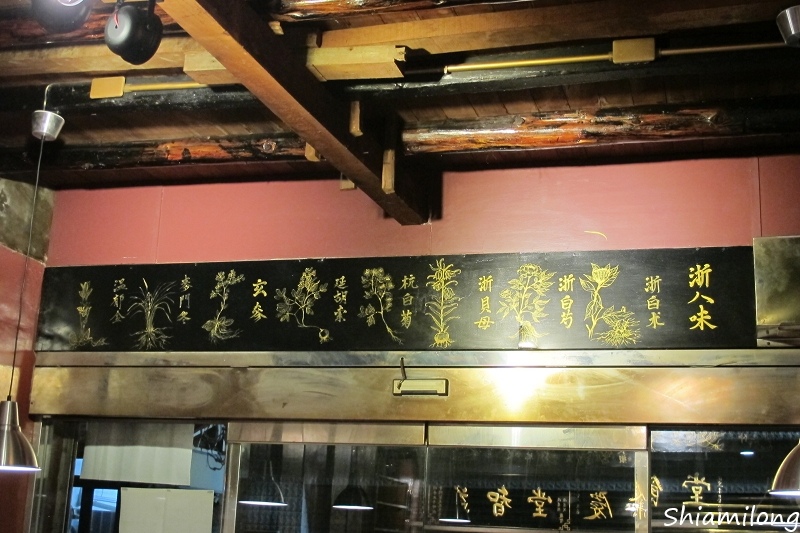 浙八味
浙白术
浙白芍
浙貝母
杭白菊
延胡索
玄參
麥門冬
溫郁金
智
堂
Shiamilong